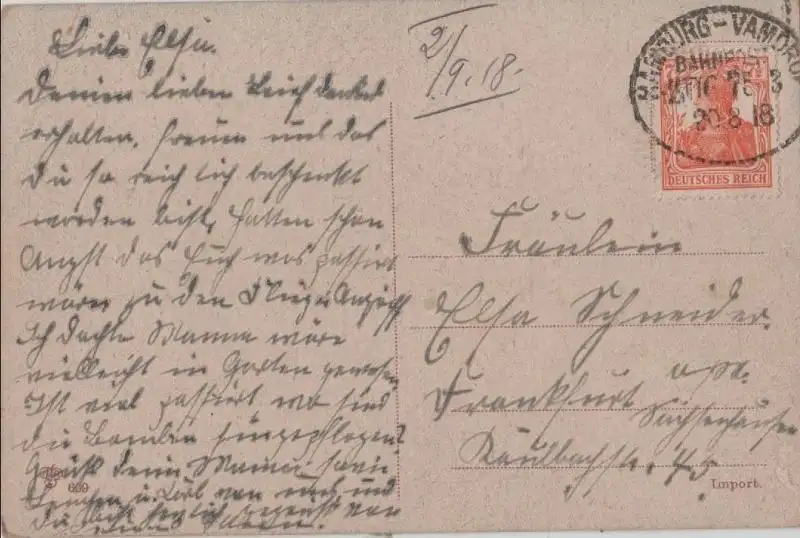 Liebe Elsa.
Deinen lieben Brief dankend
erhalten, freuen uns das
du so reichlich beschenkt
worden bist, hatten schon
Angst das Euch was passiert
wäre zu den Flieger Angriff
Ich dachte Mamma wäre
vielleicht in Garten gewesen.
Ist viel passiert, wo sind
die Bomben hingeflogen?
Grüße deine Mamma, sowie
u. von uns, und
du bist herzlich gegrüßt von
609
2/9.18.
HAMBURG-VAMDRUP
BAHNPOST
20 8 18
DEUTSCHES REICH
Fräulein
Elsa Schneider.
Frankfurt a/M.
Sachsenhausen
Kaulbachstr. 45
Import.